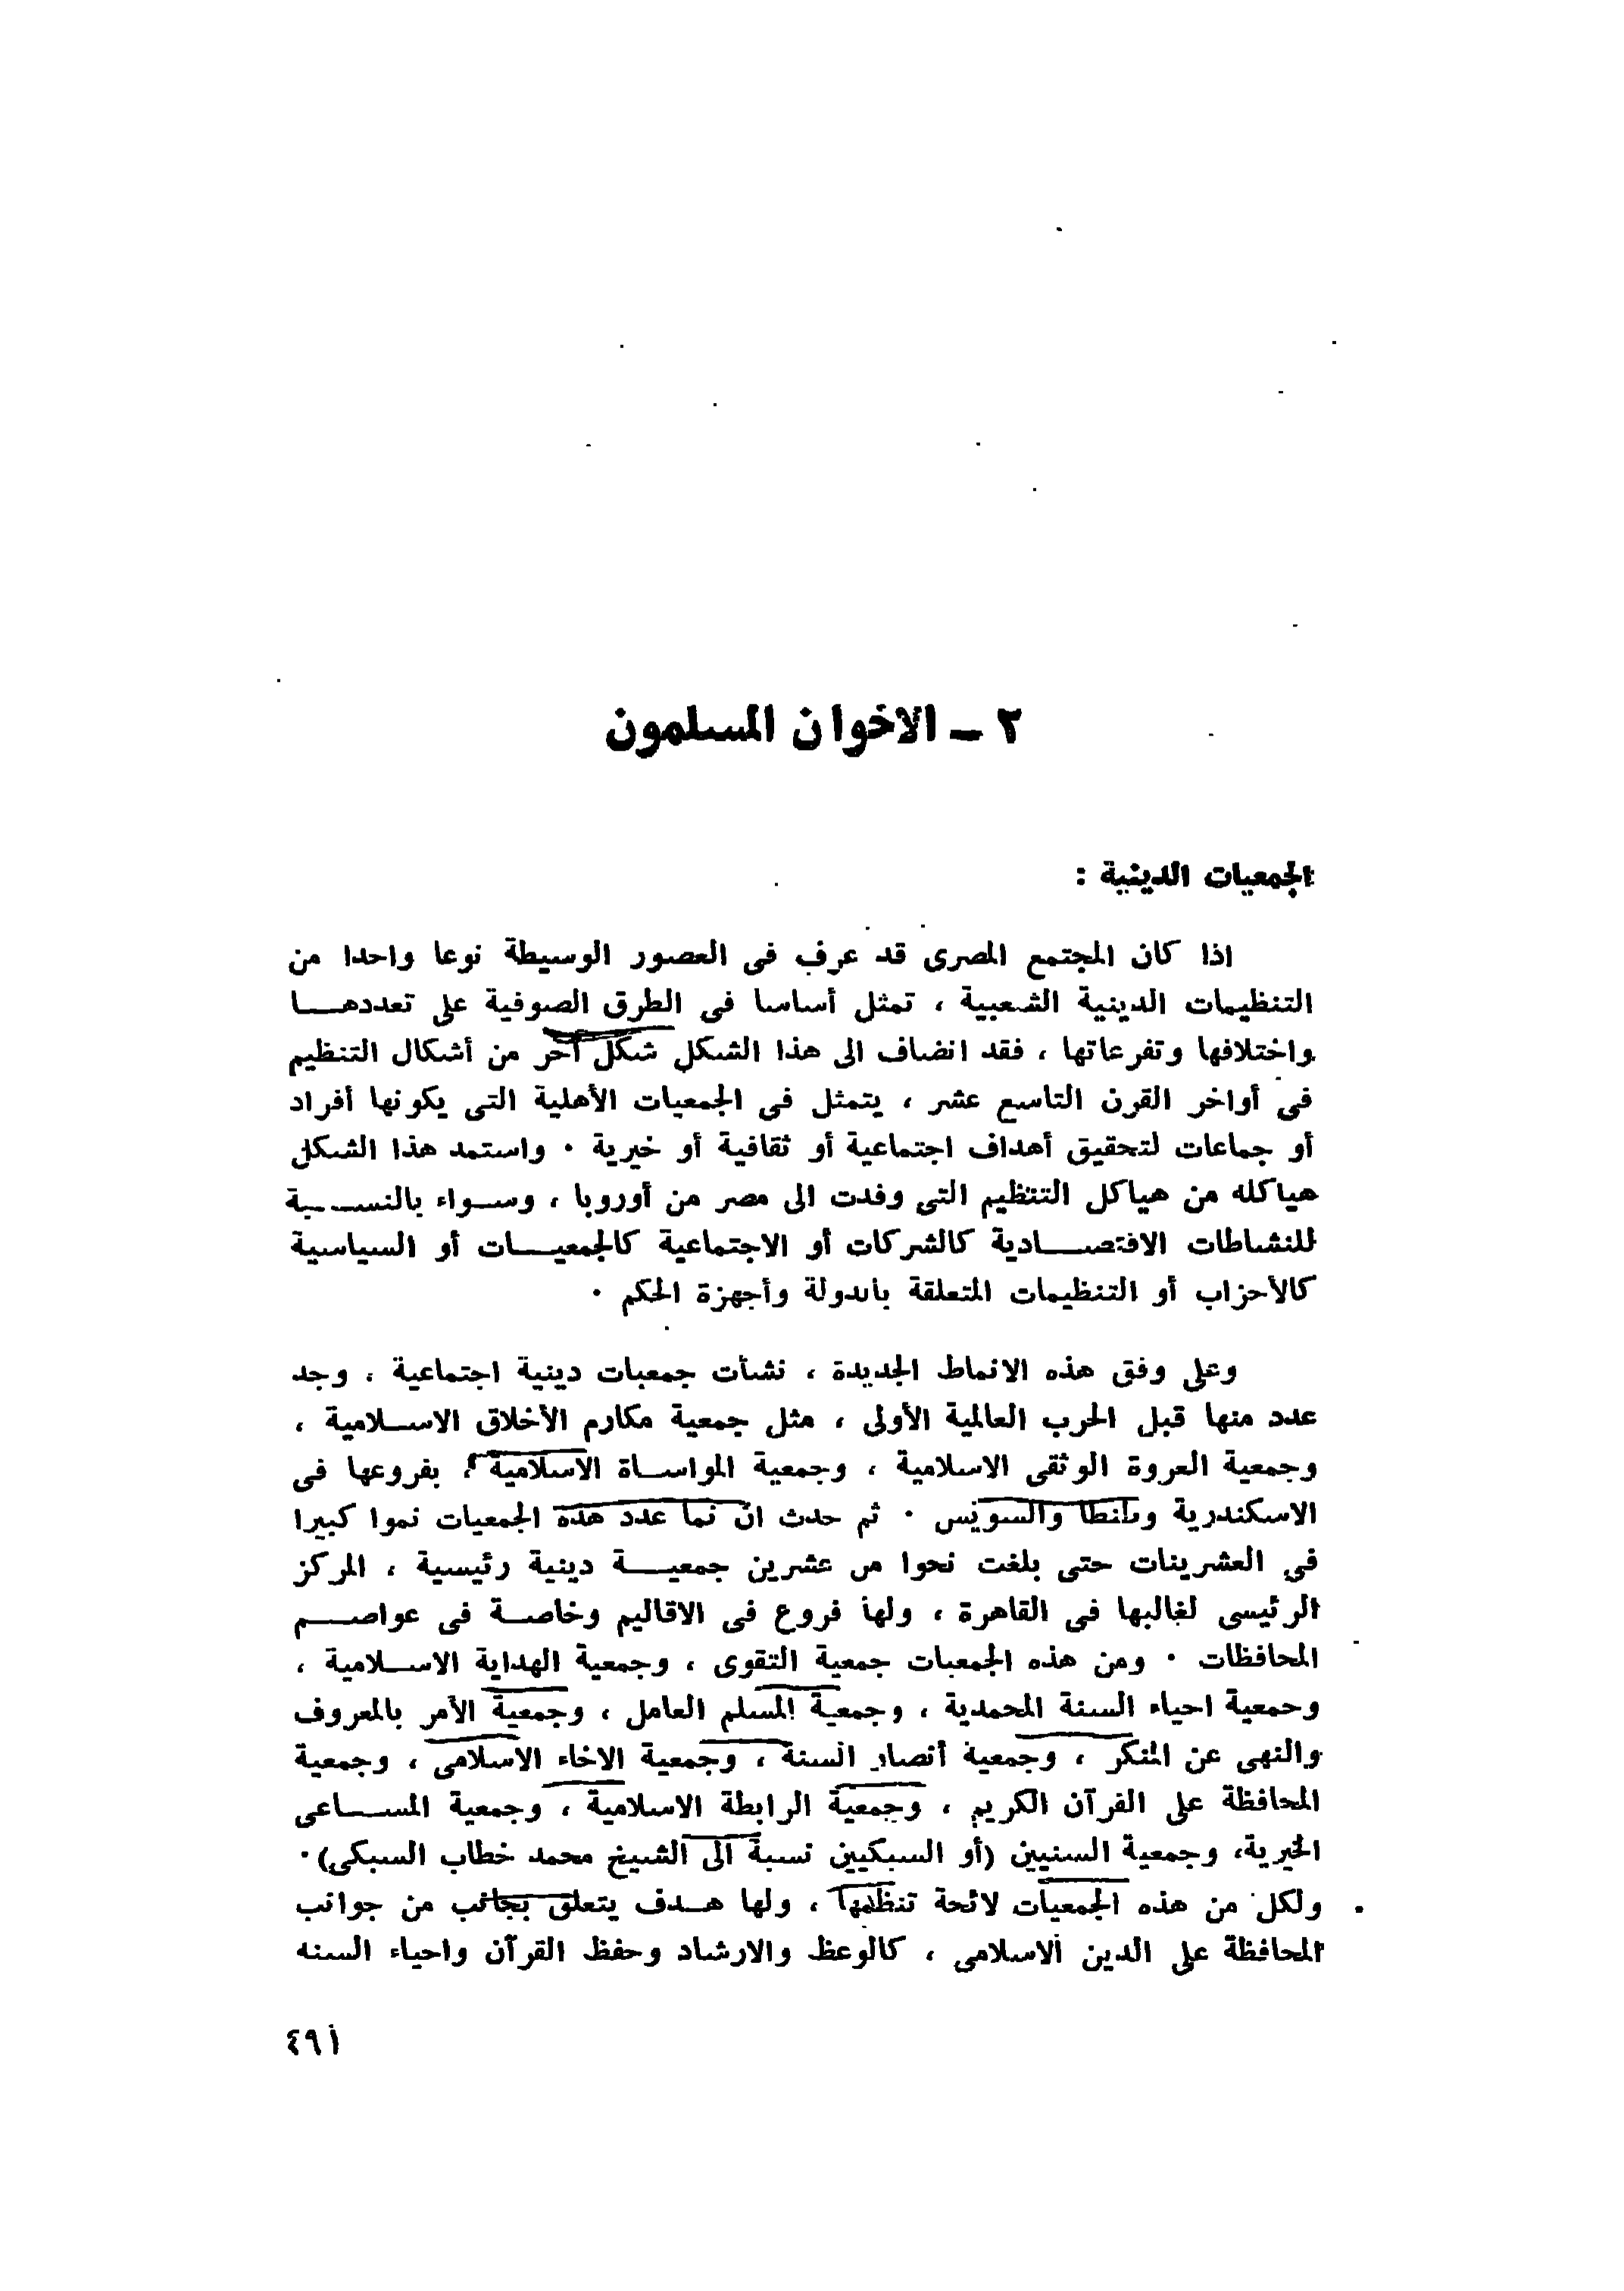 ٢ ـ الاخوان المسلمون
الجمعيات الدينية :
اذا كان المجتمع المصرى قد عرف فى العصور الوسيطة نوعا واحدا من
التنظيمات الدينية الشعبية ، تمثل أساسا فى الطرق الصوفية على تعددهـــا
واختلافها وتفرعاتها ، فقد انضاف الى هذا الشكل شكل آخر من أشكال التنظيم
فى أواخر القرن التاسع عشر ، يتمثل فى الجمعيات الأهلية التى يكونها أفراد
أو جماعات لتحقيق أهداف اجتماعية أو ثقافية أو خيرية ٠ واستمد هذا الشكل
هياكله من هياكل التنظيم التى وفدت الى مصر من أوروبا ، وســواء بالنســبة
للنشاطات الاقتصـــادية كالشركات أو الاجتماعية كالجمعيـــات أو السياسية
كالأحزاب أو التنظيمات المتعلقة بالدولة وأجهزة الحكم ٠
وعلى وفق هذه الانماط الجديدة ، نشأت جمعيات دينية اجتماعية ، وجد
عدد منها قبل الحرب العالمية الأولى ، مثل جمعية مكارم الأخلاق الاســلامية ،
وجمعية العروة الوثقى الاسلامية ، وجمعية المواســاة الاسلامية ، بفروعها فى
الاسكندرية وطنطا والسويس ٠ ثم حدث ان نما عدد هذه الجمعيات نموا كبيرا
فى العشرينات حتى بلغت نحوا من عشرين جمعيـــة دينية رئيسية ، المركز
الرئيسى لغالبها فى القاهرة ، ولها فروع فى الاقاليم وخاصــة فى عواصـــم
المحافظات ٠ ومن هذه الجمعيات جمعية التقوى ، وجمعية الهداية الاســلامية ،
وجمعية احياء السنة المحمدية ، وجمعية المسلم العامل ، وجمعية الأمر بالمعروف
والنهى عن المنكر ، وجمعية أنصار السنة ، وجمعية الاخاء الاسلامى ، وجمعية
المحافظة على القرآن الكريم ، وجمعية الرابطة الاسلامية ، وجمعية المســـاعى
الخيرية، وجمعية السنيين (أو السبكيين نسبة الى الشيخ محمد خطاب السبكى)٠
ولكل من هذه الجمعيات لائحة تنظمها ، ولها هــدف يتعلق بجانب من جوانب
المحافظة على الدين الاسلامى ، كالوعظ والارشاد وحفظ القرآن واحياء السنه
٤٩١